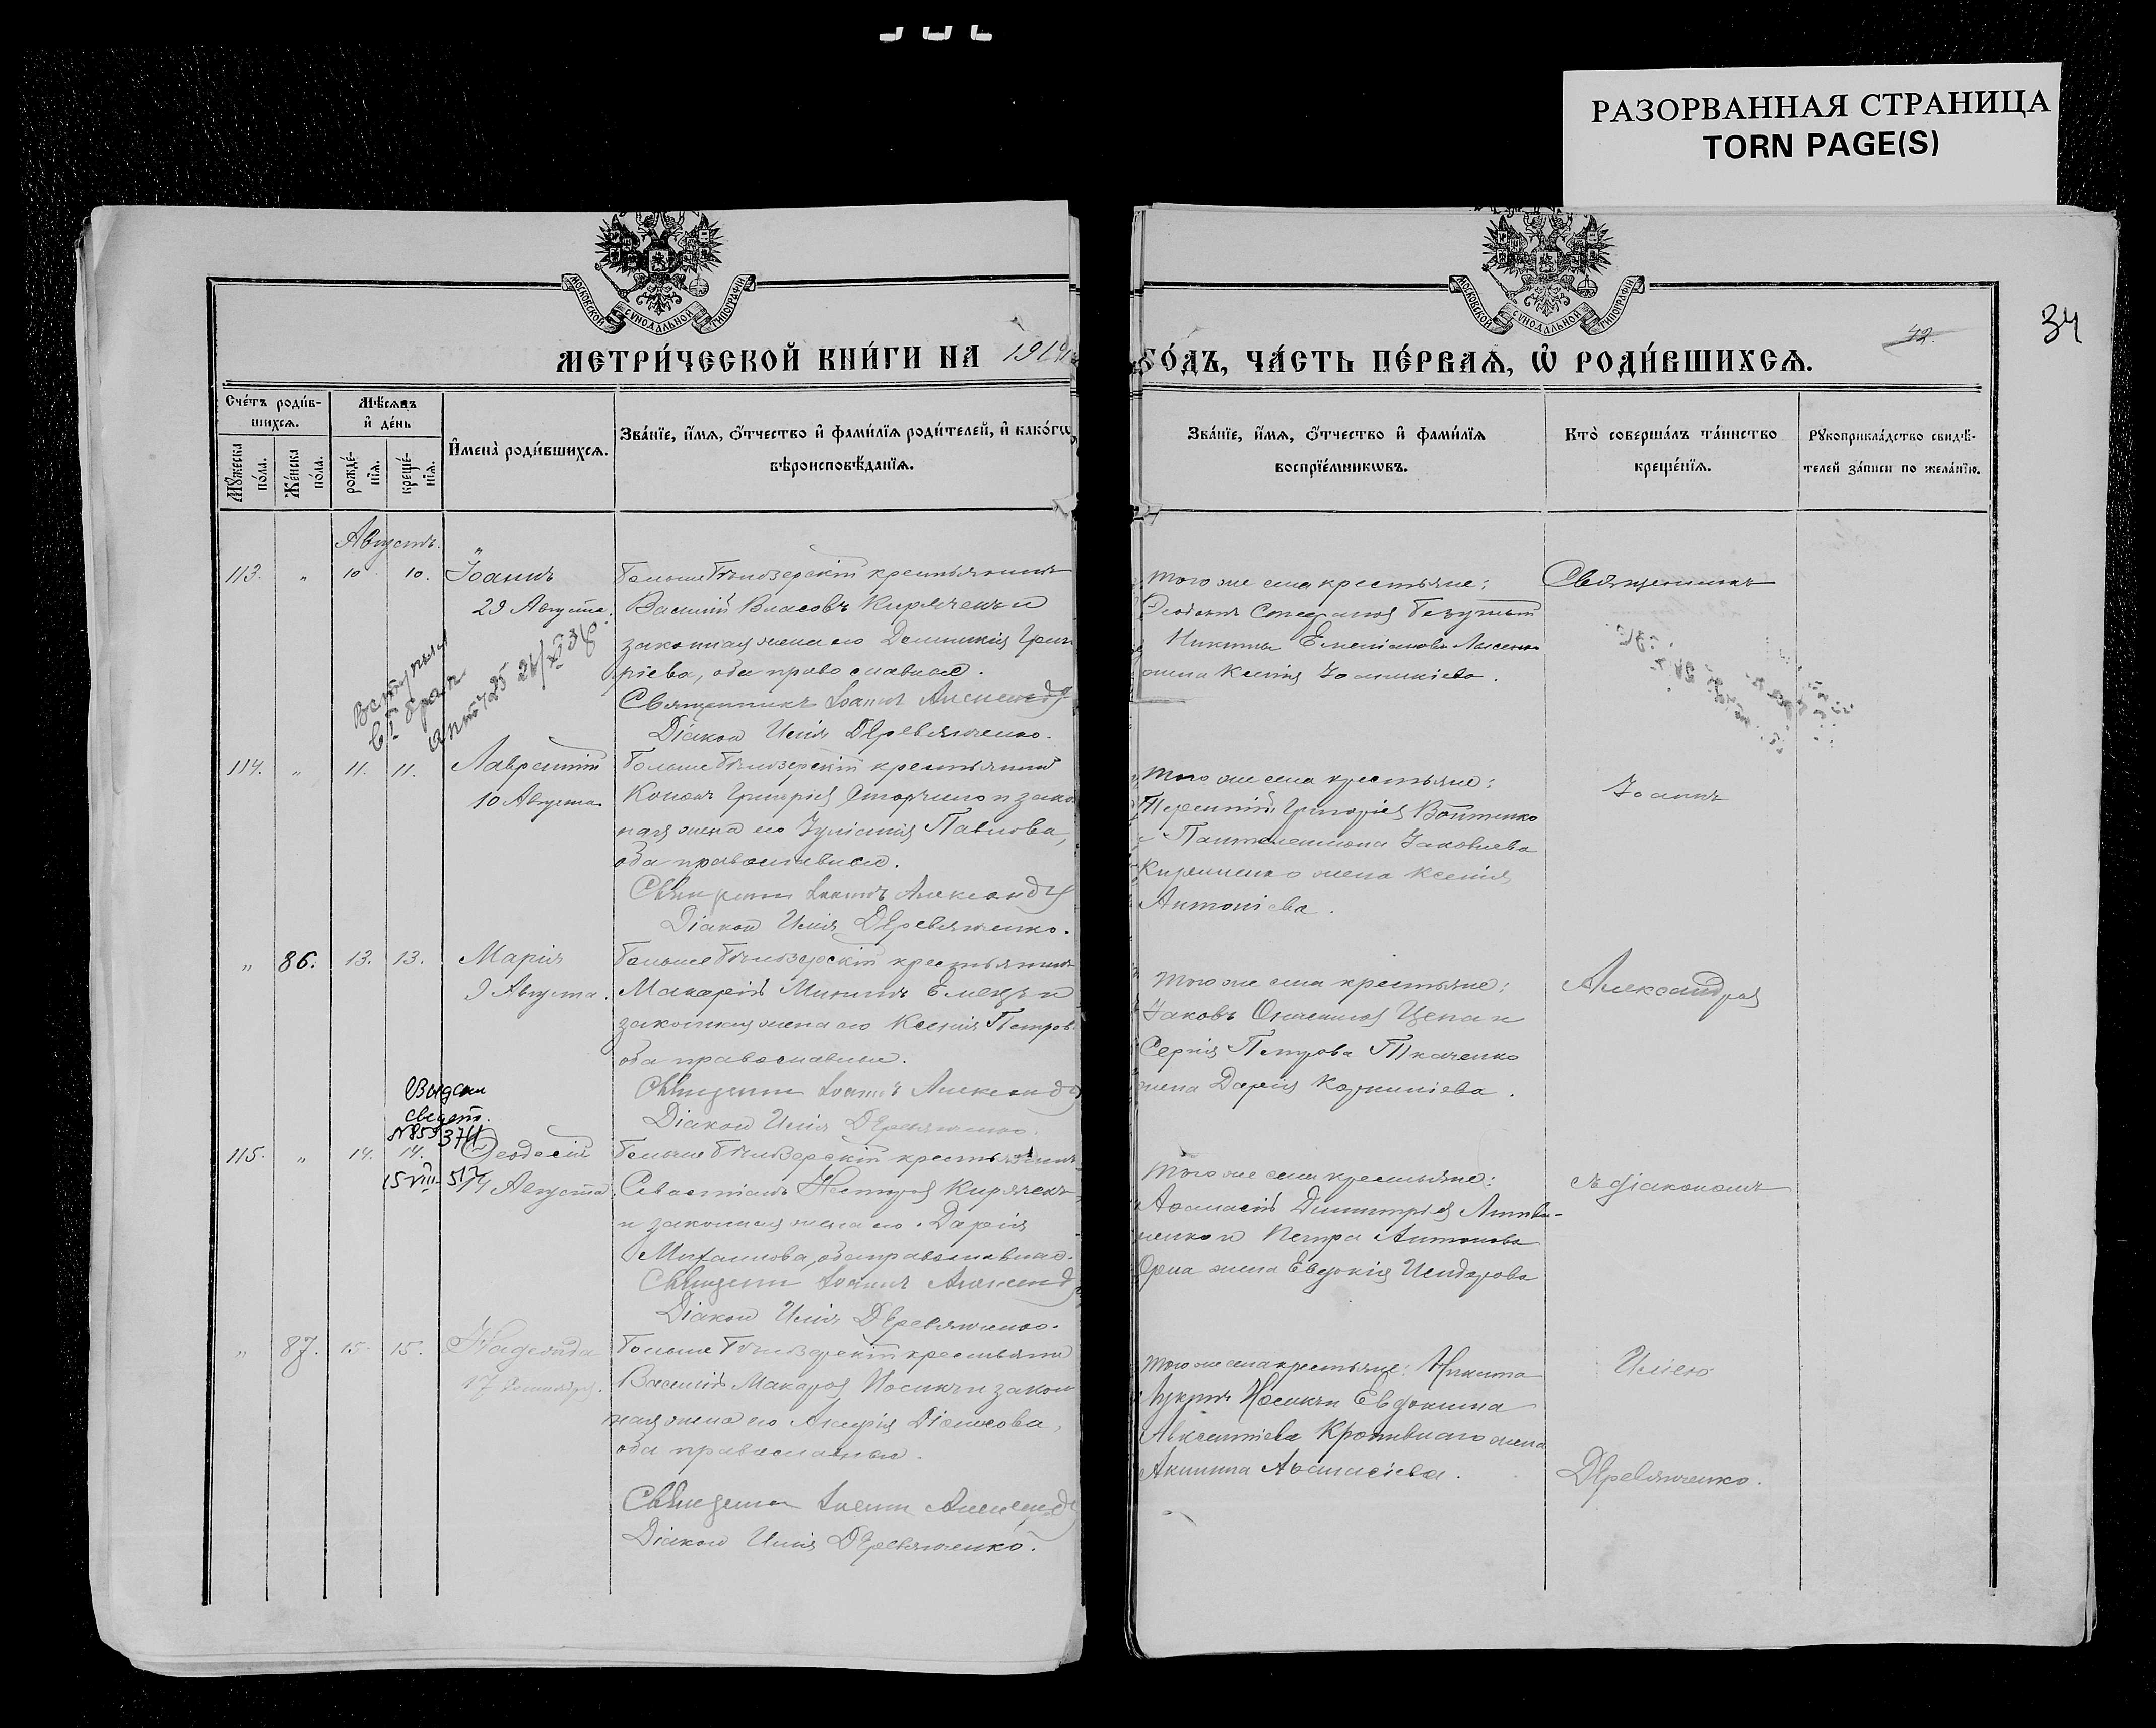 РАЗОРВАННАЯ СТРАНИЦА
TORN PAGE(S)
МОСКОВСКОЙ СѴНОДАЛЬНОЙ ТИПОГРАФІИ
МОСКОВСКОЙ СѴНОДАЛЬНОЙ ТИПОГРАФІИ
42.
34
МЕТРИ́ЧЕСКОЙ КНИ́ГИ НА 1914
ГО́ДЪ, ЧА́СТЬ ПЕ́РВАѦ, Ѡ҆ РОДИ́ВШИХСѦ.
Сче́тъ роди́в-
шихсѧ.
Мꙋ́жеска по́ла.
Же́нска по́ла.
Мѣ́сѧцъ
и҆ де́нь
рожде́-
нїѧ.
креще́-
нїѧ.
И҆мена̀ роди́вшихсѧ.
Зва́нїе, и҆́мѧ, ѻ҆́тчество и҆ фами́лїѧ роди́телей, и҆ како́гѡ
вѣроисповѣ́данїѧ.
Зва́нїе, и҆́мѧ, ѻ҆́тчество и҆ фами́лїѧ
воспрїе́мникѡвъ.
Кто̀ соверша́лъ та́инство
креще́нїѧ.
Рꙋкоприкла́дство свидѣ́-
телей за́писи по жела́нїю.
Августъ.
113. " 10 10. Іоаннъ
29 Августа.
Больше Бѣлозерскій крестьянинъ
Василій Власовъ Киряченъ и
законная жена его Домникія Григо
ріева, оба православные.
Священникъ Іоаннъ Александр
Діакон Илія Деревянченко.
Того же села крестьяне:
Стефанов
Никиты Емеліанова Лысенко
жена Ксенія Іоанникіева.
Священникъ
Вступил
в брак
25 21/XI 38
114. " 11. 11. Лаврентій
10 Августа
Больше Бѣлозерскій крестьянинъ
Конон Григоріев Сторчило и закон
ная жена его Іуліанія Павлова,
оба православные.
Священник Іоаннъ Александр
Діакон Илія Деревянченко.
Того же села крестьяне:
Терентій Григоріев Войтенко
и Пантелеимона Іаковлева
Кириленко жена Ксенія
Антоніева.
Іоаннъ
" 86. 13. 13. Марія
9 Августа.
Больше Бѣлозерскій крестьянинъ
Макарій Мининъ Емецъ и
законная жена его Ксенія Петров
оба православные.
Священник Іоаннъ Александр
Діакон Илія Деревянченко.
Того же села крестьяне:
Іаковъ Цепа и
Сергія Петрова Ткаченко
жена Дарія Корниліева.
Александров
Выдан
свидет.
№853374
15 VIII 57
115. " 14. 14. Ѳеодосій
14 Августа
Больше Бѣлозерскій крестьянинъ
Севастіанъ Несторов Киряченъ
и законная жена его Дарія
Михаилова, оба православные.
Священник Іоаннъ Александр
Діакон Илія Деревянченко.
Того же села крестьяне:
Аѳанасій Димитріев Литви-
ненко и Петра Антонова
жена Евдокія Исидорова
съ діакономъ
" 87. 15. 15. Надежда
17 Сентября.
Больше Бѣлозерскій крестьянин
Василій Макаров Носикъ и закон
ная жена его Діонисова,
оба православные.
Священник Іоанн Александр
Діакон Илія Деревянченко.
Того же села крестьяне: Никита
Носикъ и Евдокима
Авксентіева Кропивного жена
Акилина Аѳанасіева.
Иліею
Деревянченко.